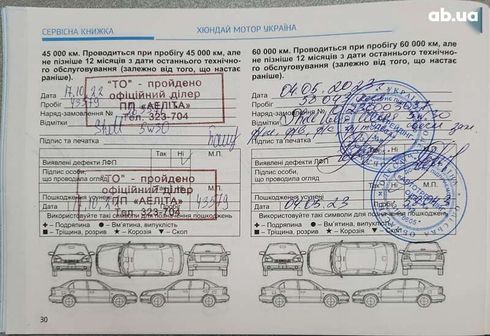 ab.ua
СЕРВІСНА КНИЖКА
ХЮНДАЙ МОТОР УКРАЇНА
45 000 км. Проводиться при пробігу 45 000 км, але
не пізніше 12 місяців з дати останнього технічно-
го обслуговування (залежно від того, що настає
раніше).
"ТО" - пройдено
офіційний ділер
ПП "АЕЛІТА"
Тел. 323-704
Дата 17.10.22
Пробіг 43379
Наряд-замовлення
Відмітки
Shell 5w30
Підпис та печатка
Так Ні М.П.
Виявлені дефекти ЛФП
Підпис особи,
що проводила огляд
"ТО" - пройдено
офіційний ділер
ПП "АЕЛІТА"
Тел. 323-704
Дата
Пошкодження
Використовуйте такі символи для позначення пошкоджень
+ – Подряпина ● – Вм'ятина, випуклість
■ – Тріщина, розрив ★ – Корозія ▼ – Скол
30
60 000 км. Проводиться при пробігу 60 000 км, але
не пізніше 12 місяців з дати останнього технічно-
го обслуговування (залежно від того, що настає
раніше).
Дата 04.05.2023
Пробіг
Наряд-замовлення
Відмітки
Підпис та печатка
Так Ні М.П.
Виявлені дефекти ЛФП
Підпис особи,
що проводила огляд
Дата 04.05.23
Пошкодження
Використовуйте такі символи для позначення пошкоджень
+ – Подряпина ● – Вм'ятина, випуклість
■ – Тріщина, розрив ★ – Корозія ▼ – Скол